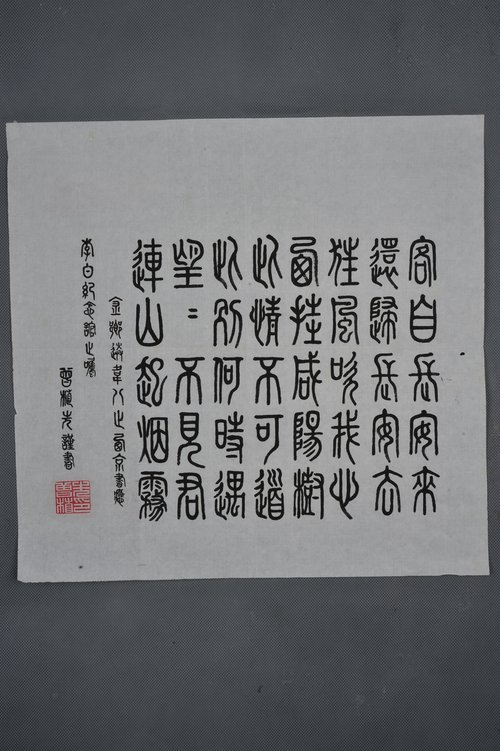 客自長安來
還歸長安去
狂風吹我心
西挂咸陽樹
此情不可道
此別何時遇
望〻不見君
連山起烟霧
金鄉送韋八之西京書應
李白紀念館之囑
謹書